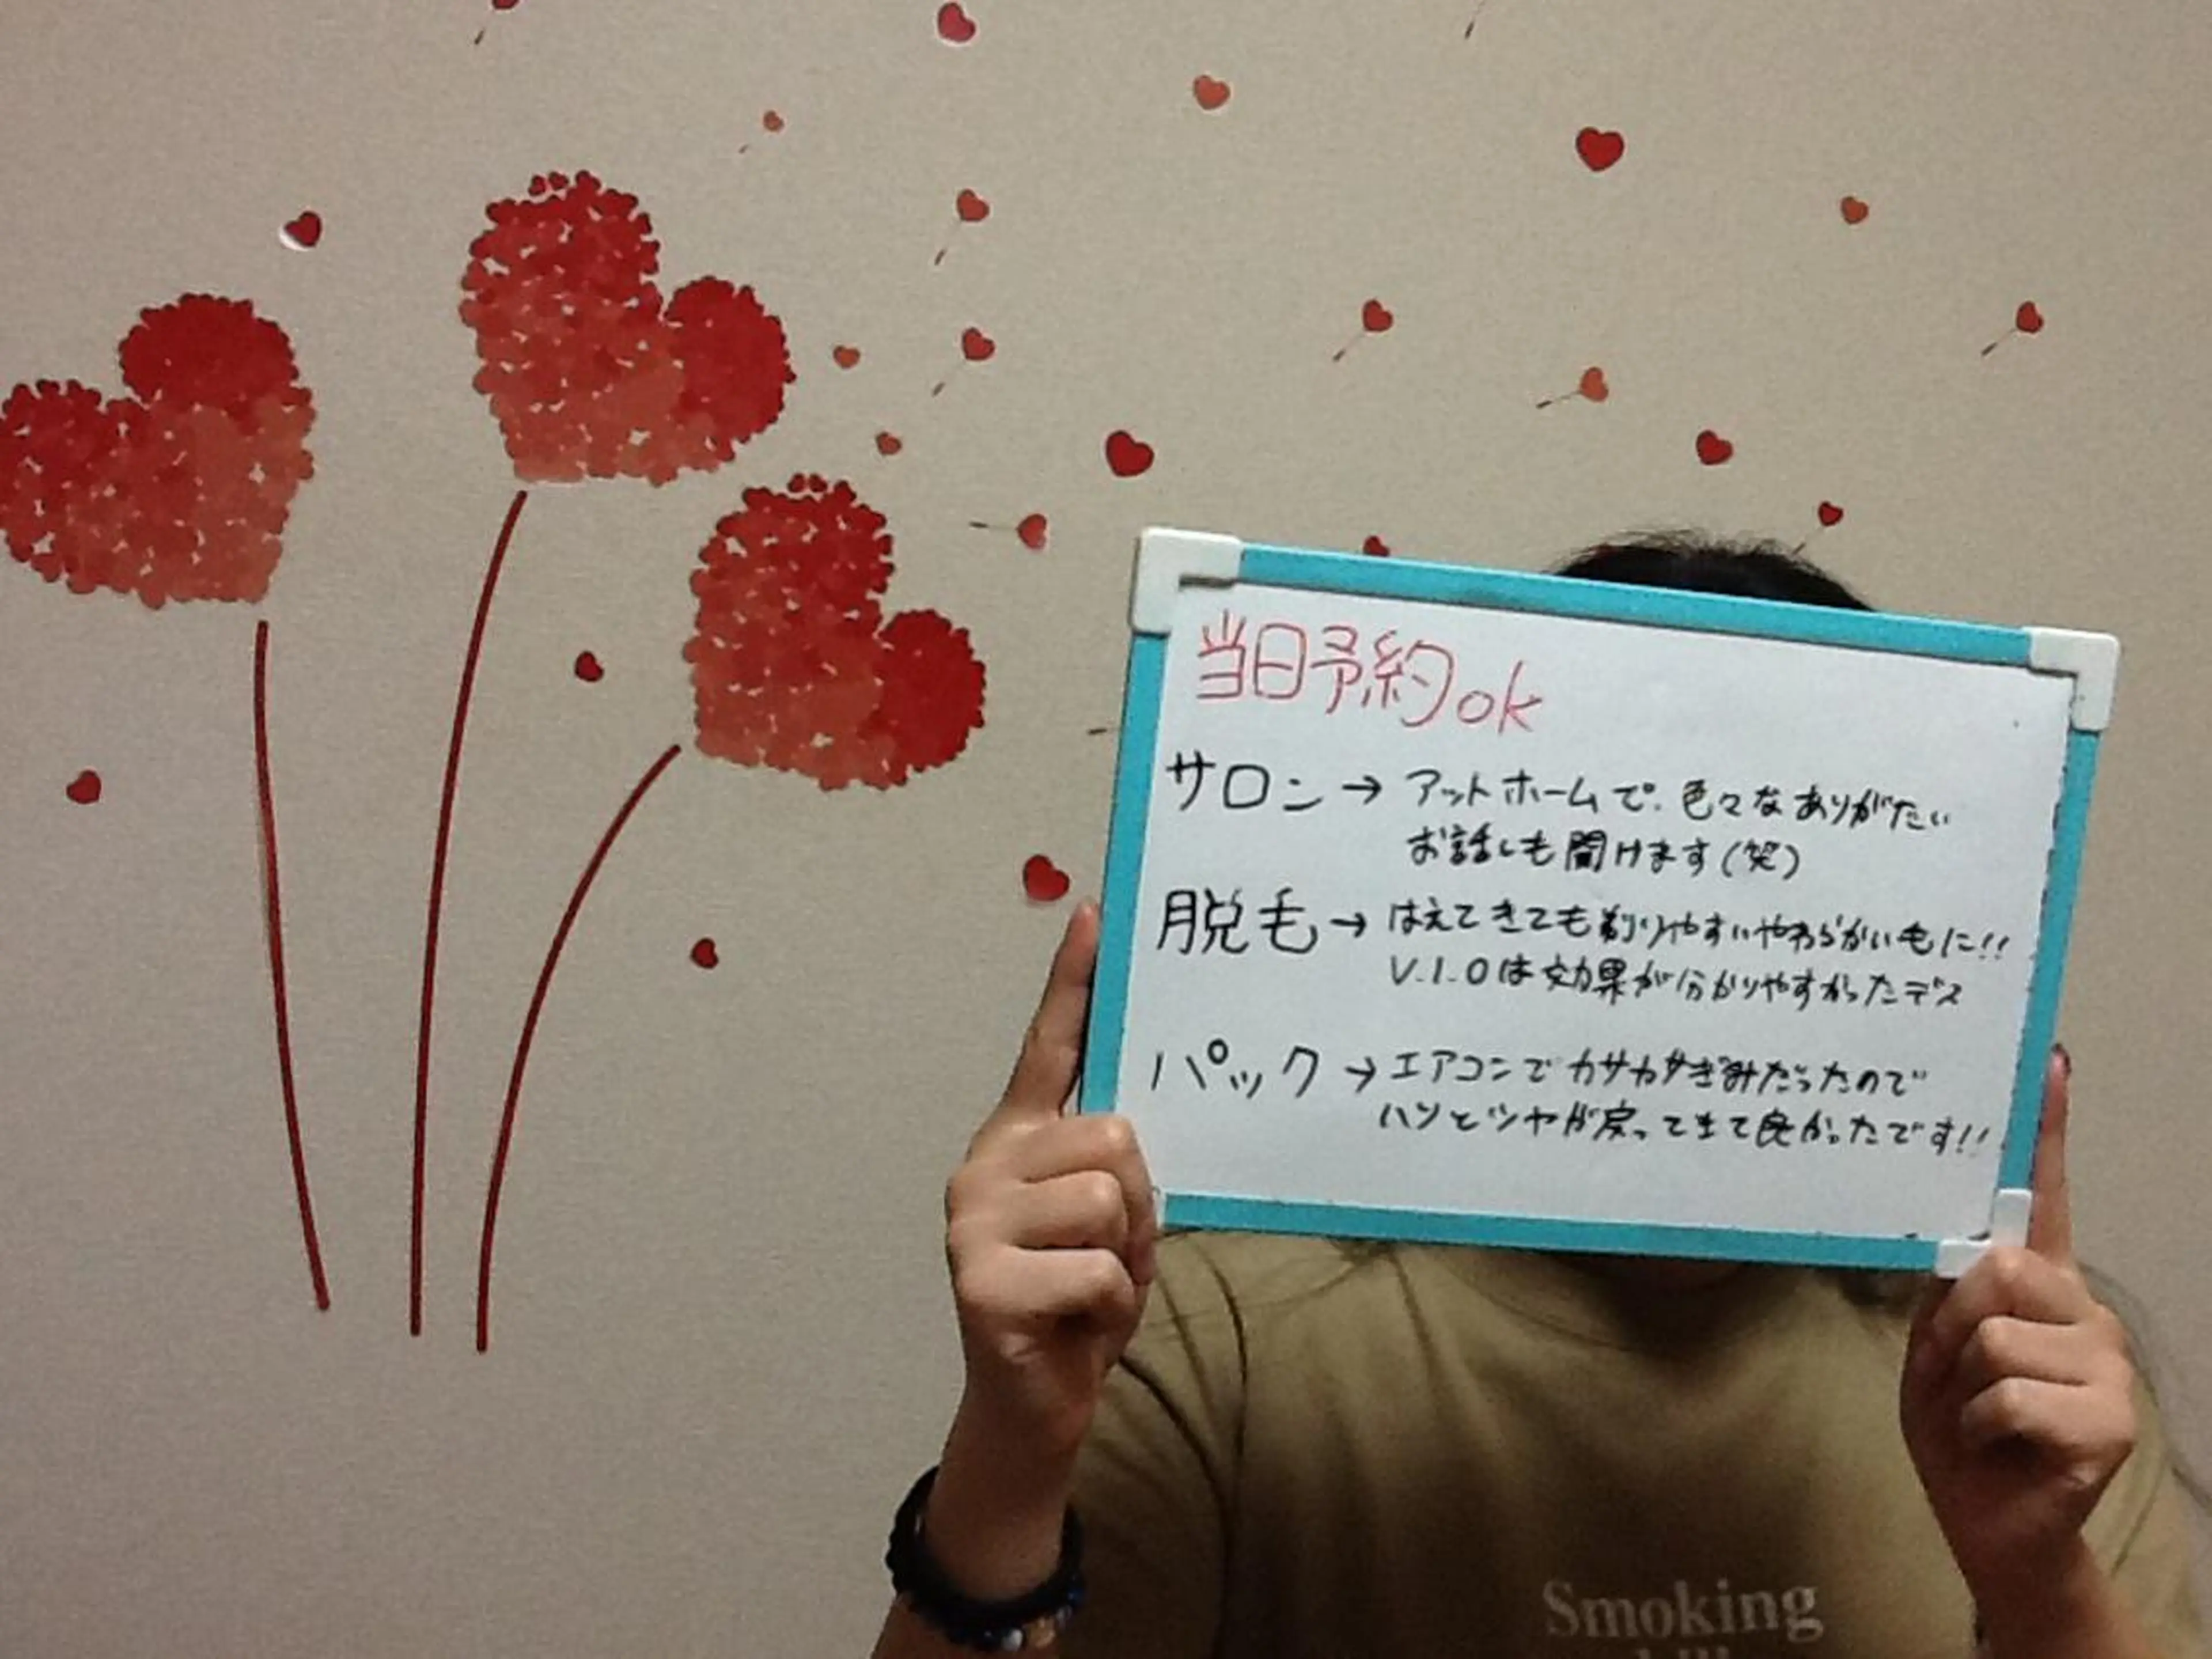 当日予約ok
サロン→アットホームで、色々なありがたい
お話しも聞けます(笑)
脱毛→はえてきても剃りやすいやわらかい毛に!!
V.I.Oは効果が分かりやすかったデス
パック→エアコンでカサカサぎみだったので
ハリとツヤが戻ってきて良かったです!!
Smoking